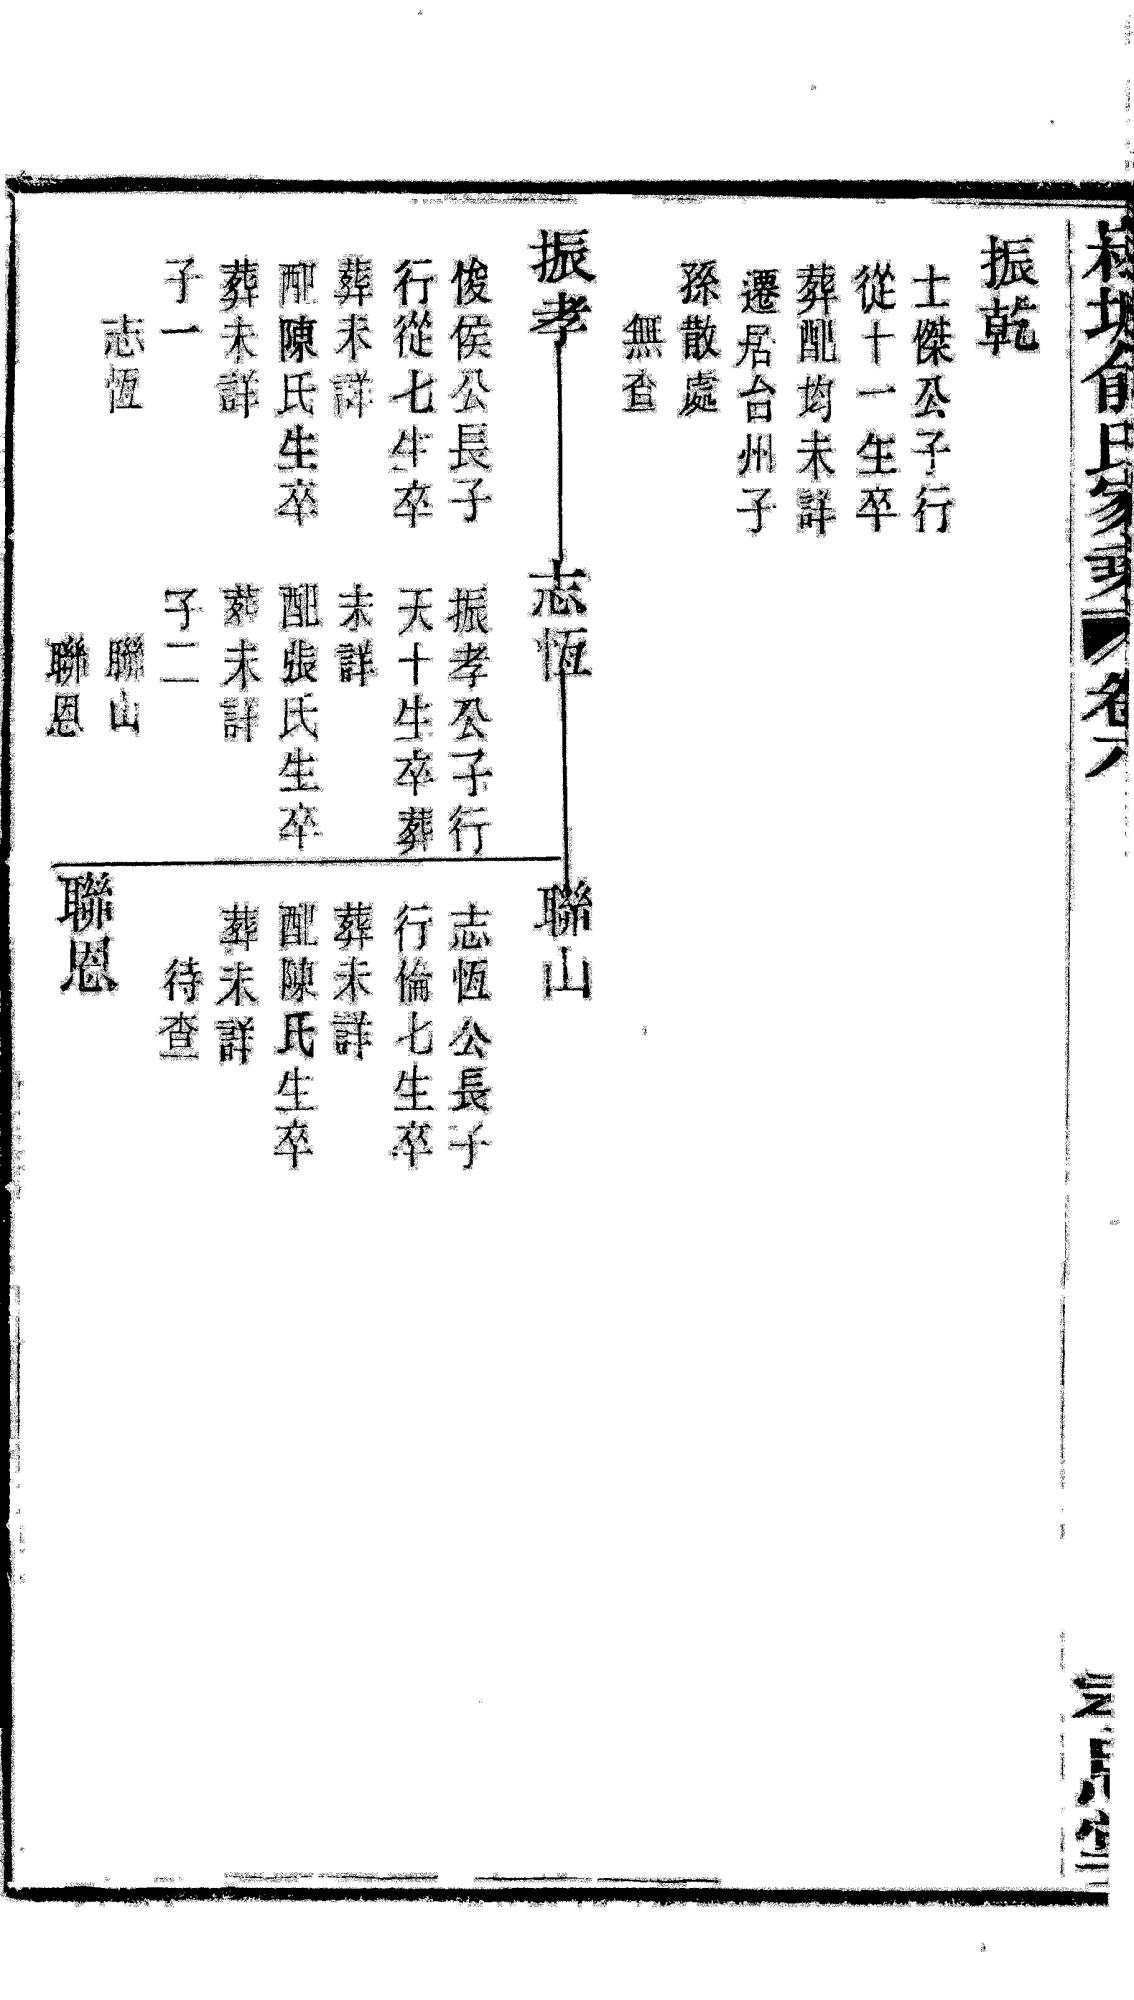 俞氏家乘 卷六
振乾
士傑公子行
從十一生卒
葬配均未詳
遷居台州子
孫散處
無查
振孝
俊侯公長子
行從七生卒
葬未詳
配陳氏生卒
葬未詳
子一
志恆
志恆
振孝公子行
天十生卒葬
未詳
配張氏生卒
葬未詳
子二
聯山
聯恩
聯山
志恆公長子
行倫七生卒
葬未詳
配陳氏生卒
葬未詳
待查
聯恩